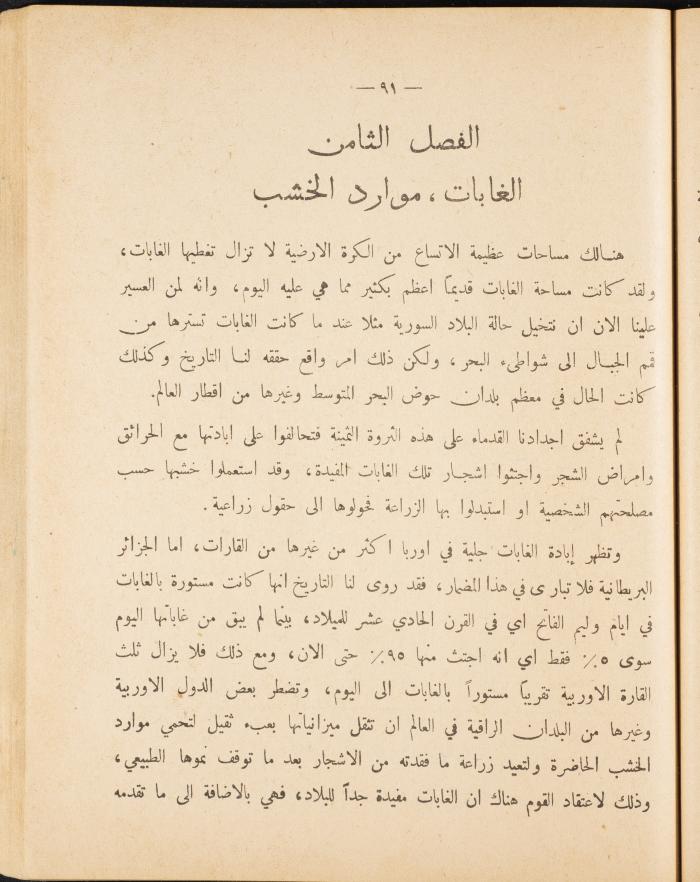 — ٩١ —
الفصل الثامن
الغابات ، موارد الخشب
هنالك مساحات عظيمة الاتساع من الكرة الارضية لا تزال تغطيها الغابات ،
ولقد كانت مساحة الغابات قديماً اعظم بكثير مما هي عليه اليوم ، وانه لمن العسير
علينا الان ان نتخيل حالة البلاد السورية مثلا عند ما كانت الغابات تسترها من
قمم الجبال الى شواطىء البحر ، ولكن ذلك امر واقع حققه لنا التاريخ وكذلك
كانت الحال في معظم بلدان حوض البحر المتوسط وغيرها من اقطار العالم .
لم يشفق اجدادنا القدماء على هذه الثروة الثمينة فتحالفوا على ابادتها مع الحرائق
وامراض الشجر واجتثوا اشجار تلك الغابات المفيدة ، وقد استعملوا خشبها حسب
مصلحتهم الشخصية او استبدلوا بها الزراعة فحولوها الى حقول زراعية .
وتظهر إبادة الغابات جلية في اوربا اكثر من غيرها من القارات ، اما الجزائر
البريطانية فلا تبارى في هذا المضمار ، فقد روى لنا التاريخ انها كانت مستورة بالغابات
في ايام وليم الفاتح اي في القرن الحادي عشر للميلاد ، بينما لم يبق من غاباتها اليوم
سوى ٥٪ فقط اي انه اجتث منها ٩٥٪ حتى الان ، ومع ذلك فلا يزال ثلث
القارة الاوربية تقريباً مستوراً بالغابات الى اليوم ، وتضطر بعض الدول الاوربية
وغيرها من البلدان الراقية في العالم ان تثقل ميزانياتها بعبء ثقيل لتحمي موارد
الخشب الحاضرة ولتعيد زراعة ما فقدته من الاشجار بعد ما توقف نموها الطبيعي ،
وذلك لاعتقاد القوم هناك ان الغابات مفيدة جداً للبلاد ، فهي بالاضافة الى ما تقدمه